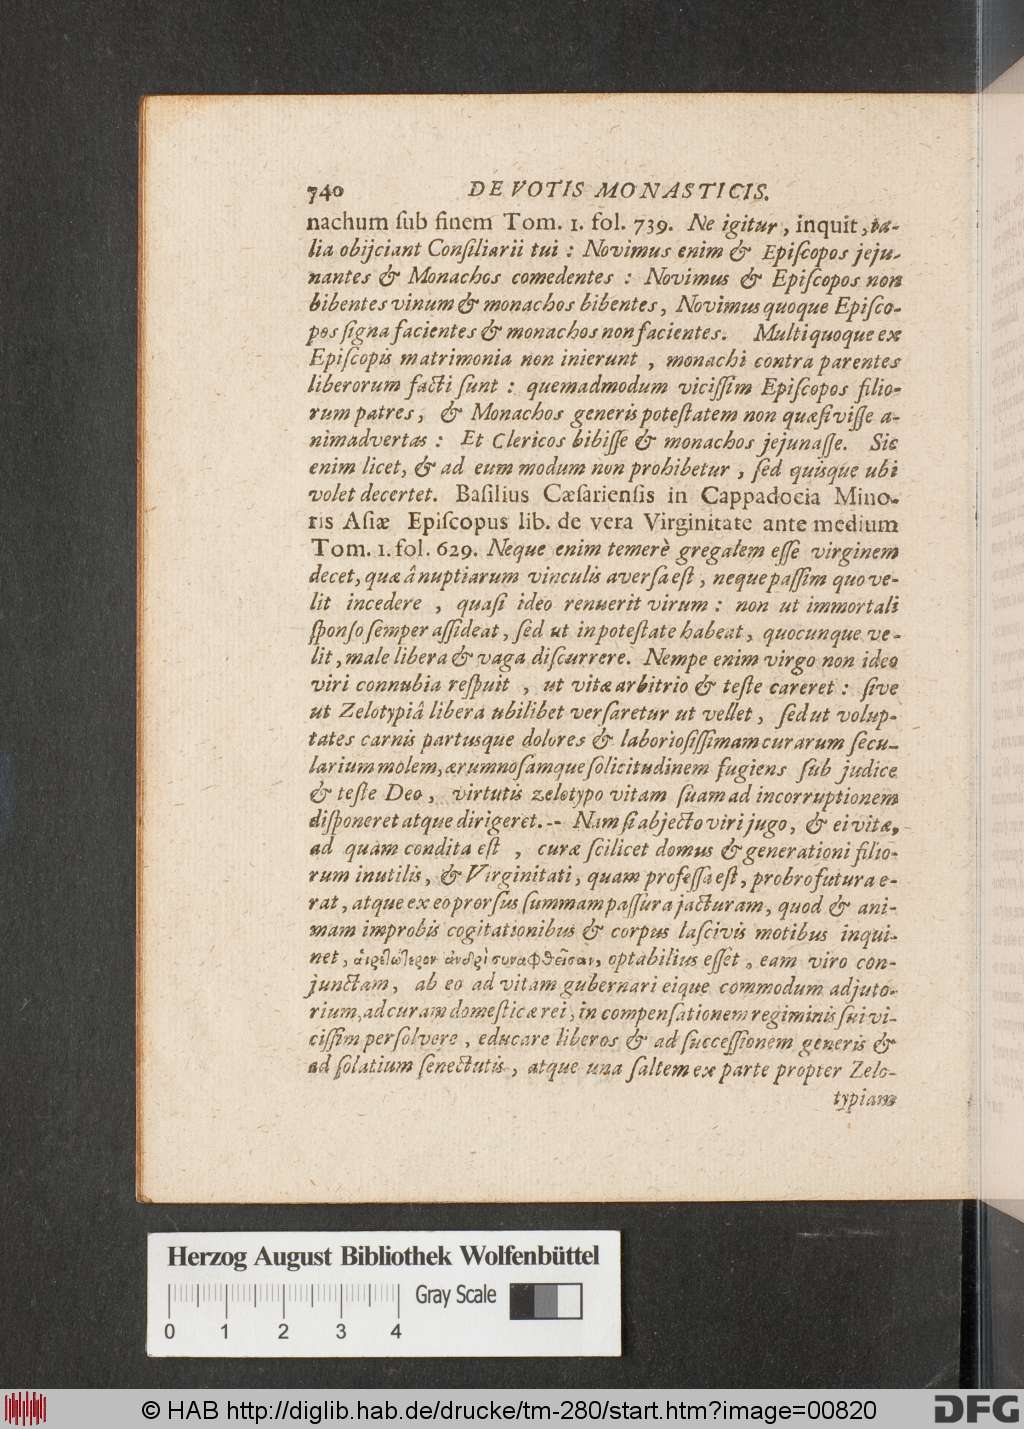 740 DE VOTIS MONASTICIS.
nachum ſub finem Tom. 1. fol. 739. Ne igitur, inquit, ta-
lia obijciant Conſiliarii tui : Novimus enim & Epiſcopos jeju-
nantes & Monachos comedentes : Novimus & Epiſcopos non
bibentes vinum & monachos bibentes, Novimus quoque Epiſco-
pos ſigna facientes & monachos non facientes. Multi quoque ex
Epiſcopis matrimonia non inierunt , monachi contra parentes
liberorum facti ſunt : quemadmodum viciſſim Epiſcopos filio-
rum patres, & Monachos generis poteſtatem non quæſiviſſe a-
nimadvertas : Et Clericos bibiſſe & monachos jejunaſſe. Sic
enim licet, & ad eum modum non prohibetur , ſed quisque ubi
volet decertet. Baſilius Cæſarienſis in Cappadocia Mino-
ris Aſiæ Epiſcopus lib. de vera Virginitate ante medium
Tom. 1. fol. 629. Neque enim temerè gregalem eſſe virginem
decet, quæ â nuptiarum vinculis averſa eſt , neque paſſim quo ve-
lit incedere , quaſi ideo renuerit virum : non ut immortali
ſponſo ſemper aſſideat, ſed ut in poteſtate habeat, quocunque ve-
lit, male libera & vaga diſcurrere. Nempe enim virgo non ideo
viri connubia reſpuit , ut vitæ arbitrio & teſte careret : ſive
ut Zelotypiâ libera ubilibet verſaretur ut vellet, ſed ut volup-
tates carnis partusque dolores & laborioſiſſimam curarum ſecu-
larium molem, ærumnoſamque ſolicitudinem fugiens ſub judice
& teſte Deo, virtutis zelotypo vitam ſuam ad incorruptionem
diſponeret atque dirigeret. -- Nam ſi abjecto viri jugo, & ei vitæ,
ad quam condita eſt , curæ ſcilicet domus & generationi filio-
rum inutilis, & Virginitati, quam profeſſa eſt, probro futura e-
rat, atque ex eo prorſus ſummam paſſura jacturam, quod & ani-
mam improbis cogitationibus & corpus laſcivis motibus inqui-
net, αἱρετώτερον ἀνδρὶ συναφθεῖσαν, optabilius eſſet , eam viro con-
junctam, ab eo ad vitam gubernari eique commodum adjuto-
rium, ad curam domeſticæ rei, in compenſationem regiminis ſui vi-
ciſſim perſolvere , educare liberos & ad ſucceſſionem generis &
ad ſolatium ſenectutis, atque una ſaltem ex parte propter Zelo-
typiam
Herzog August Bibliothek Wolfenbüttel
Gray Scale
0 1 2 3 4
© HAB http://diglib.hab.de/drucke/tm-280/start.htm?image=00820
DFG